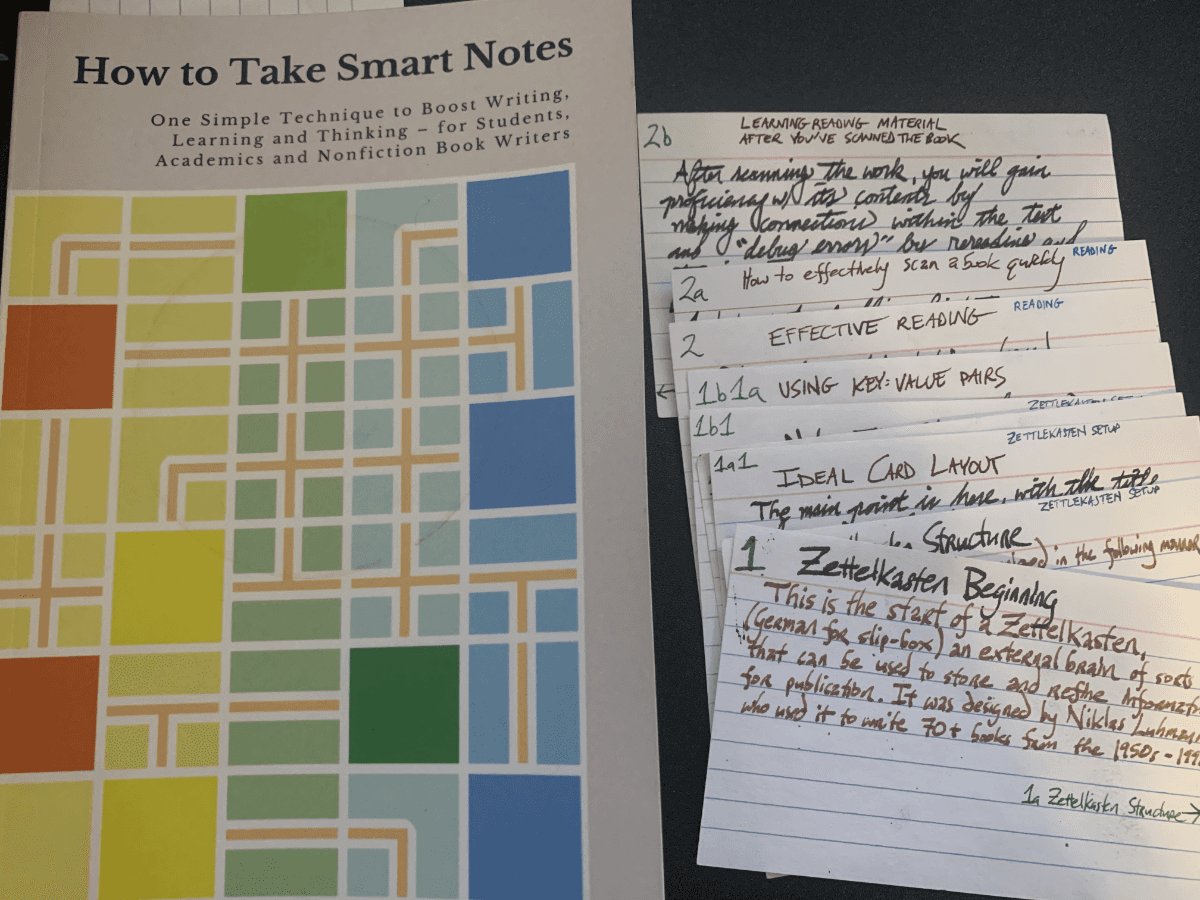 How to Take Smart Notes
One Simple Technique to Boost Writing,
Learning and Thinking – for Students,
Academics and Nonfiction Book Writers
2b
LEARNING READING MATERIAL
AFTER YOU'VE SCANNED THE BOOK
After scanning the work, you will gain
proficiency w/ its contents by
making connections within the text
and "debug errors" by rereading and
2a
How to effectively scan a book quickly
READING
2
EFFECTIVE READING
READING
1b1a USING KEY:VALUE PAIRS
1b1
1a1
ZETTLEKASTEN SETUP
IDEAL CARD LAYOUT
The main point is here, with the title,
ZETTLEKASTEN SETUP
Structure
in the following manner
1
Zettelkasten Beginning
This is the start of a Zettelkasten,
(German for slip-box) an external brain of sorts
that can be used to store and refine
for publication. It was designed by Niklas
who used it to write 70+ books from the 1950s-
1a Zettelkasten Structure →